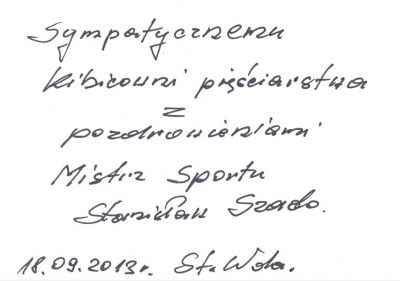 Sympatycznemu
kibicowi pięściarstwa
z
pozdrowieniami
Mistrz Sportu
Stanisław Szado.
18.09.2013r. St.Wola.